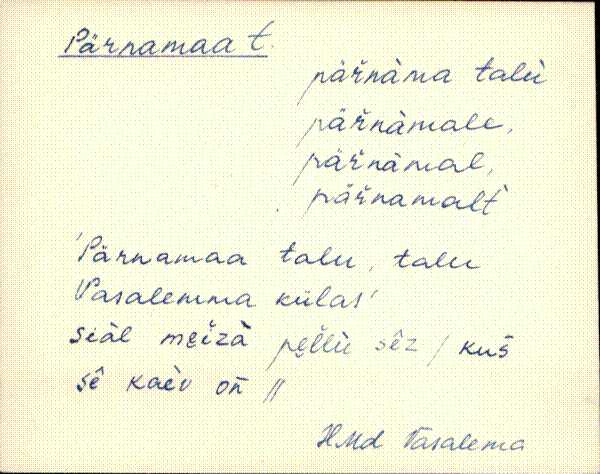 Pärnamaa t.
pär̆nàma talù
pär̆nàmale,
pär̆nàmal,
pär̆namalt̀
'Pärnamaa talu, talu
Vasalemma külas'
siàl mei̮zà pel̆lù sêz / kus̄
sê kaèv on̄ //
HMd Vasalema